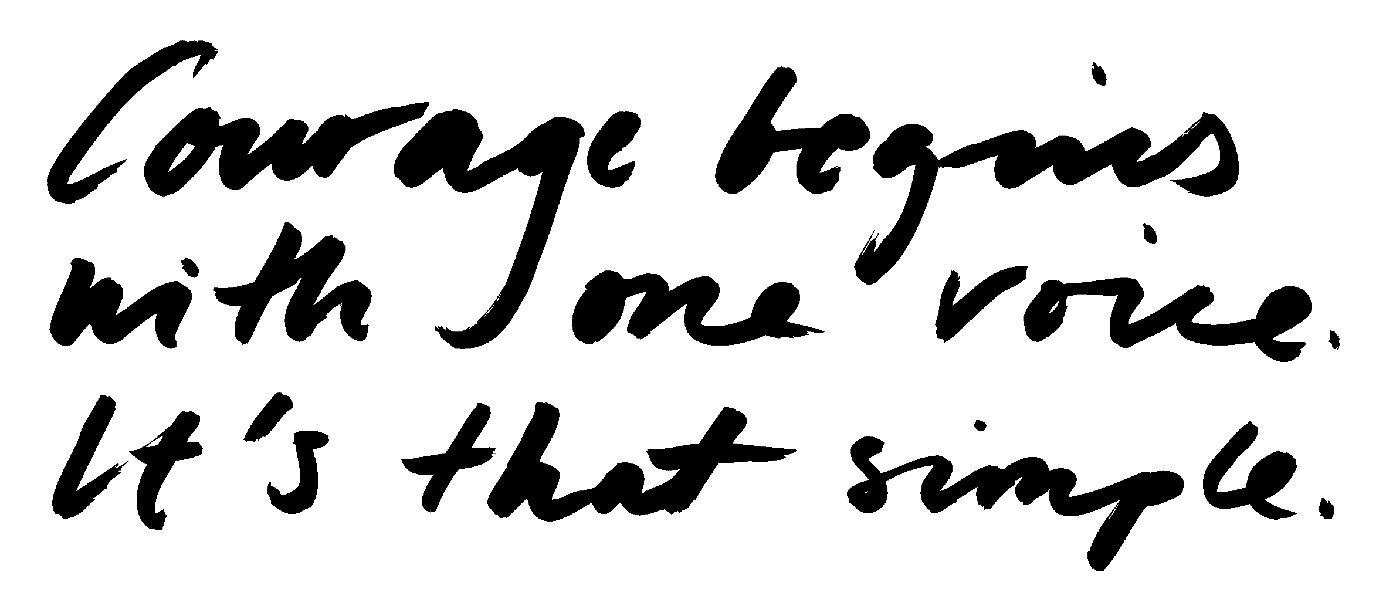 Courage begins
with one voice.
It's that simple.